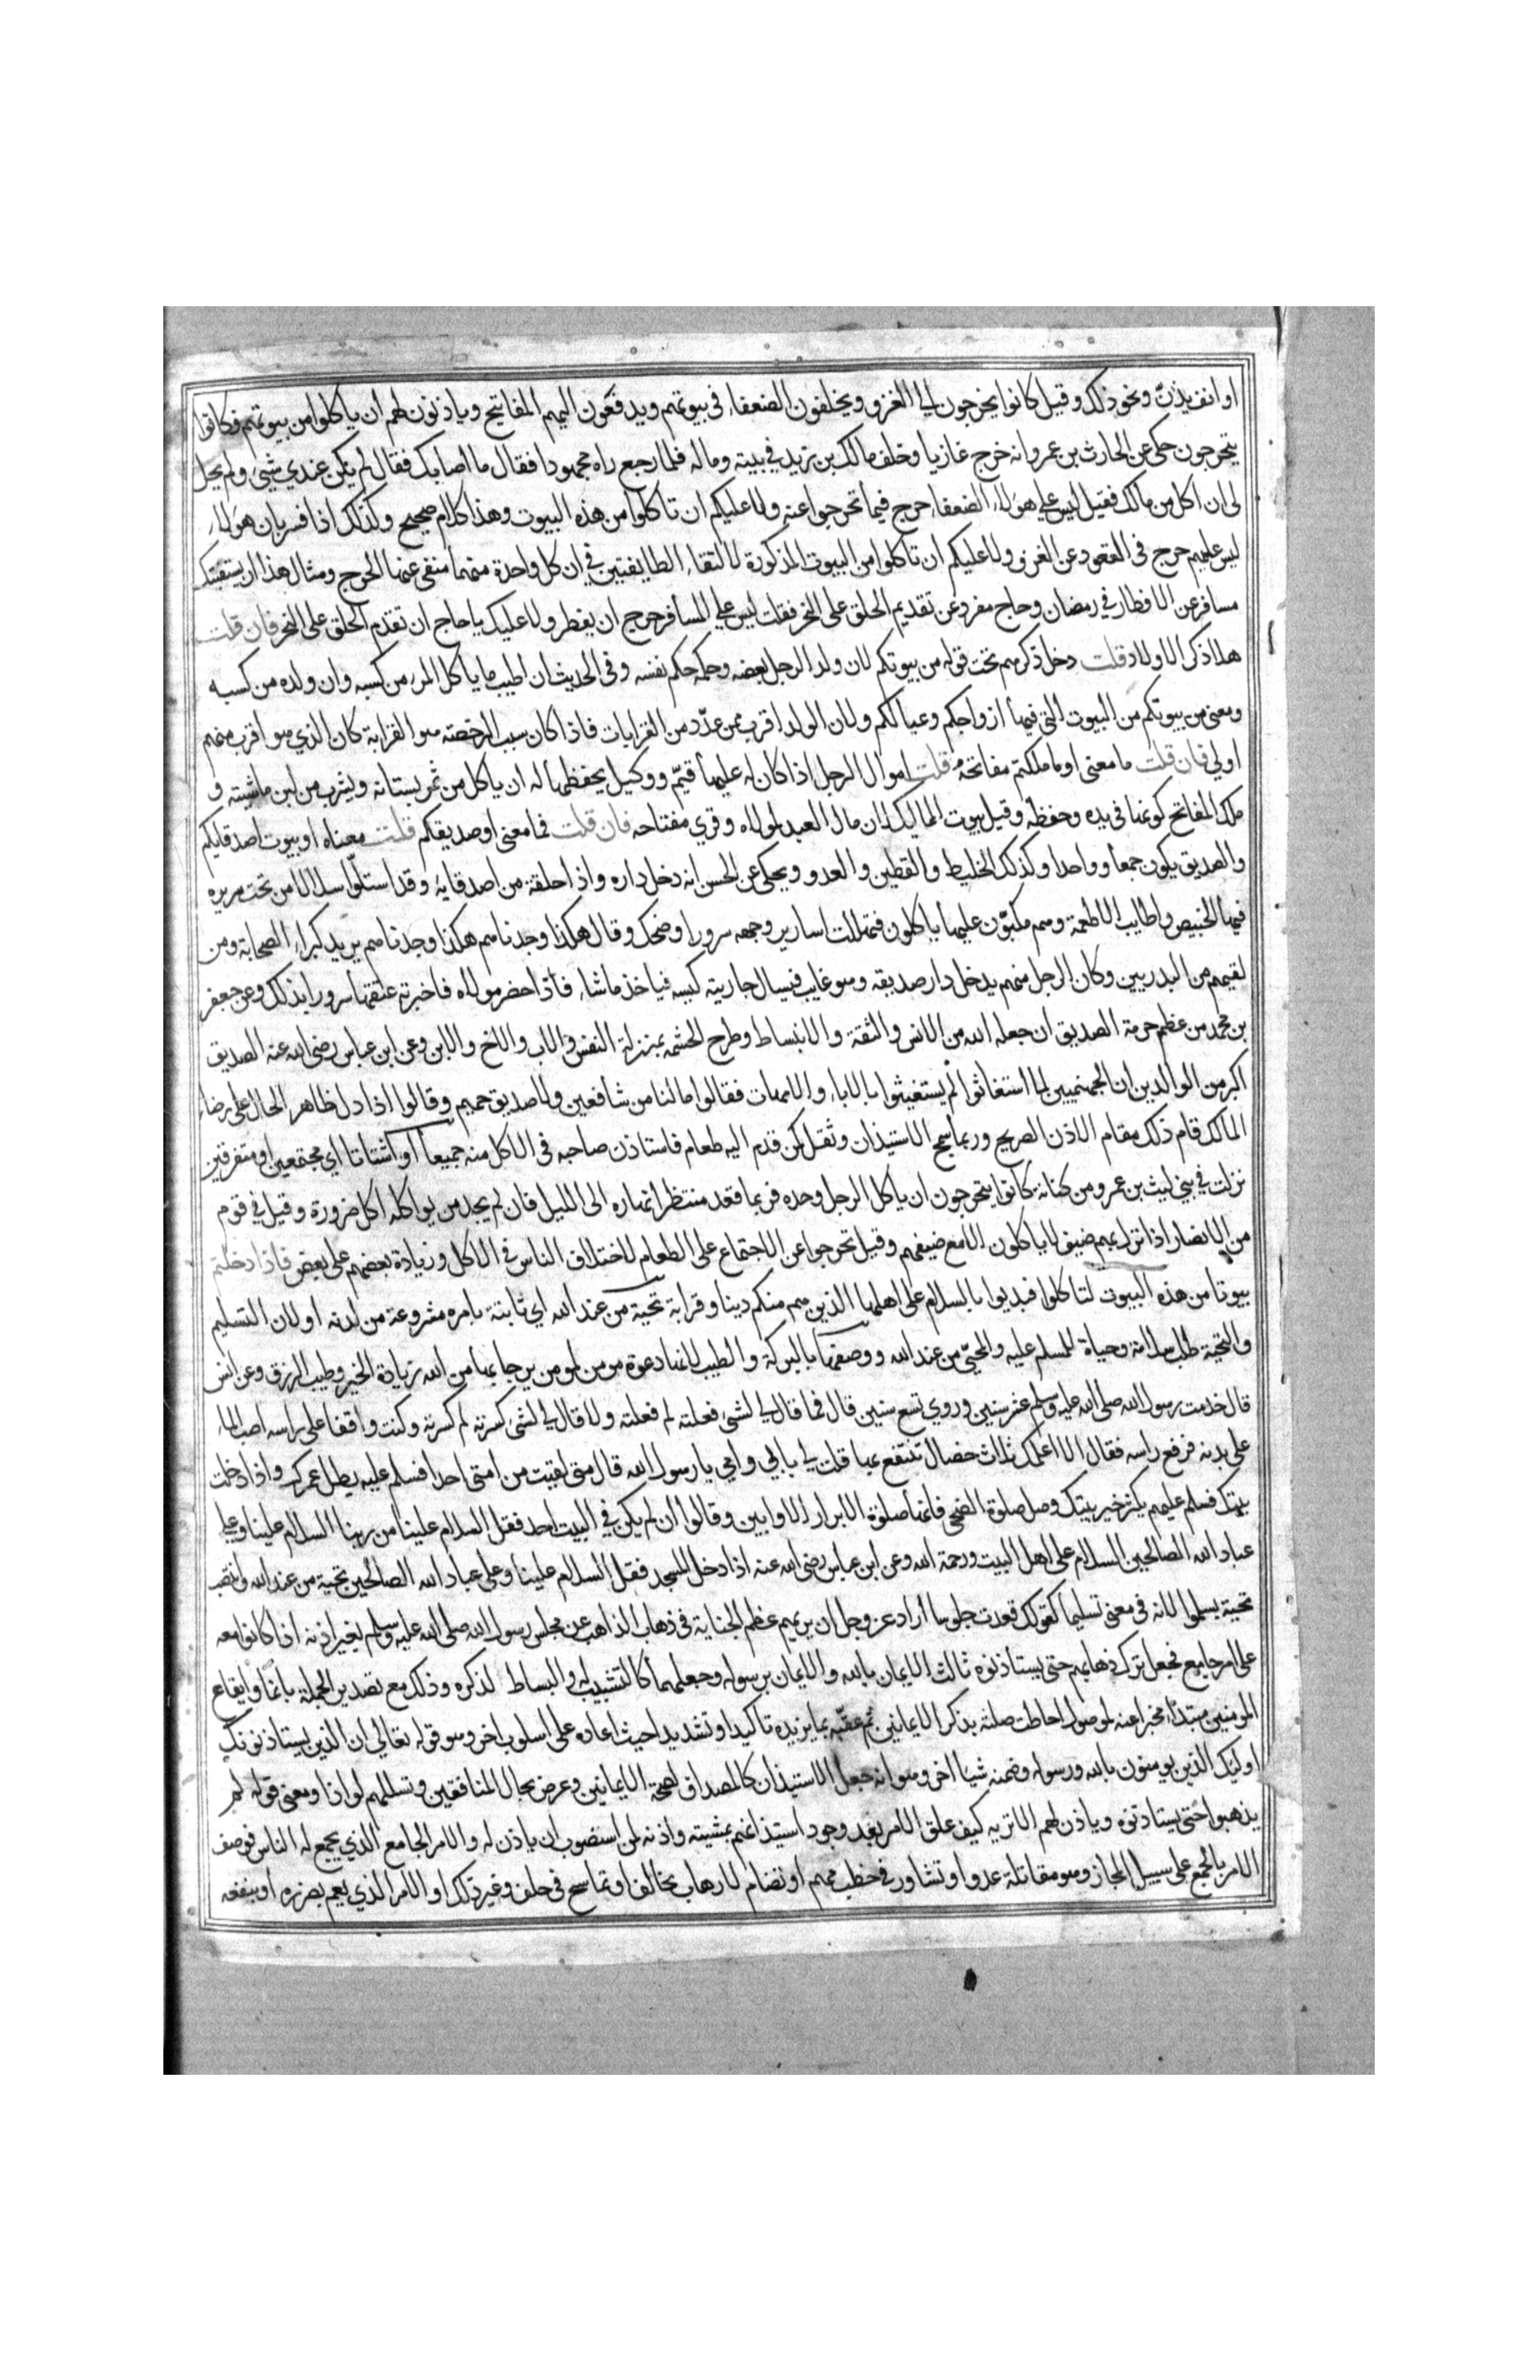 او انف يذن ونحو ذلك وقيل كانوا يخرجون الى الغزو ويخلفون الضعفاء في بيوتهم ويدفعون اليهم المفاتيح وياذنون لهم ان ياكلوا من بيوتهم فكانوا
يتحرجون حكى عن الحارث بن عمرو انه خرج غازيا وخلف مالك بن زيد في بيته وماله فلما رجع راه مجهودا فقال ما اصابك فقال لم يكن عندي شيئ ولم يحل
لى ان اكل من مالك فقيل ليس على هولاء الضعفاء حرج فيما تحرجوا عنه ولا عليكم ان تاكلوا من هذه البيوت وهذا كلام صحيح وكذلك اذا فسر بان هولاء
ليس عليهم حرج في القعود عن الغزو ولا عليكم ان تاكلوا من البيوت المذكورة لالتقاء الطايفتين في ان كل واحدة منهما منفى عنها الحرج ومثال هذا ان يستفتيك
مسافر عن الافطار في رمضان وحاج مفرد عن تقديم الحلق على النحر فقلت ليس على المسافر حرج ان يفطر ولا عليك يا حاج ان تقدم الحلق على النحر فان قلت
هلا ذكر الاولاد قلت دخل ذكرهم تحت قوله من بيوتكم لان ولد الرجل بعضه وحكمه حكم نفسه وفي الحديث ان اطيب ما ياكل المرء من كسبه وان ولده من كسبه
ومعنى من بيوتكم من البيوت التي فيها ازواجكم وعيالكم ولان الولد اقرب ممن عدد من القرابات فاذا كان سبب الرخصة هو القرابة كان الذي هو اقرب منهم
اولى فان قلت ما معنى او ما ملكتم مفاتحه قلت اموال الرجل اذا كان له عليها قيم ووكيل يحفظها له ان ياكل من ثمر بستانه ويشرب من لبن ماشيته و
ملك المفاتح كونها في يده وحفظه وقيل بيوت المماليك لان مال العبد لمولاه وقري مفتاحه فان قلت فما معنى او صديقكم قلت معناه او بيوت اصدقايكم
والصديق يكون جمعا وواحدا وكذلك الخليط والقطين والعدو ويحكى عن الحسن انه دخل داره واذا حلقة من اصدقايه وقد استلوا سلالا من تحت سريره
فيها الخبيص واطايب الاطعمة وهم مكبون عليها ياكلون فتهللت اسارير وجهه سرورا وضحك وقال هكذا وجدناهم هكذا وجدناهم يريد كبراء الصحابة ومن
لقيهم من البدريين وكان الرجل منهم يدخل دار صديقه وهو غايب فيسال جاريته كيسه فياخذ ما شاء فاذا حضر مولاه فاخبرته عتقها سرورا بذلك وعن جعفر
بن محمد من عظم حرمة الصديق ان جعله الله من الانس والثقة والانبساط وطرح الحشمة بمنزلة النفس والاب والاخ والابن وعن ابن عباس رضى الله عنه الصديق
اكبر من الوالدين ان الجهنميين لما استغاثوا لم يستغيثوا بالاباء والامهات فقالوا ما لنا من شافعين ولا صديق حميم وقالوا اذا دل ظاهر الحال على رضاء
المالك قام ذلك مقام الاذن الصريح وربما سمج الاستيذان وثقل كمن قدم اليه طعام فاستاذن صاحبه في الاكل منه جميعا او اشتاتا اي مجتمعين او متفرقين
نزلت في بني ليث بن عمرو من كنانة كانوا يتحرجون ان ياكل الرجل وحده فربما قعد منتظرا نهاره الى الليل فان لم يجد من يواكله اكل ضرورة وقيل في قوم
من الانصار اذا نزل بهم ضيف لا ياكلون الا مع ضيفهم وقيل تحرجوا عن الاجتماع على الطعام لاختلاف الناس في الاكل وزيادة بعضهم على بعض فاذا دخلتم
بيوتا من هذه البيوت لتاكلوا فبديوا بالسلام على اهلها الذين هم منكم دينا وقرابة تحية من عند الله اي ثابتة بامره مشروعة من لدنه او لان التسليم
والتحية طلب سلامة وحياة للمسلم عليه والمحيى من عند الله ووصفها بالبركة والطيب لانها دعوة مومن لمومن يرجا بها من الله زيادة الخير وطيب الرزق وعن انس
قال خدمت رسول الله صلى الله عليه وسلم عشر سنين وروي تسع سنين قال فما قال لي لشئ فعلته لم فعلته ولا قال لي لشئ كسرته لم كسرته وكنت واقفا على راسه اصب الماء
على يديه فرفع راسه فقال الا اعلمك ثلاث خصال تنتفع بها قلت بلى بابي وامي يا رسول الله قال متى لقيت من امتى احدا فسلم عليه يطل عمرك واذا دخلت
بيتك فسلم عليهم يكثر خير بيتك وصل صلوة الضحى فانها صلوة الابرار الاوابين وقالوا ان لم يكن في البيت احد فقل السلام علينا من ربنا السلام علينا وعلى
عباد الله الصالحين السلام على اهل البيت ورحمة الله وعن ابن عباس رضى الله عنه اذا دخل المسجد فقل السلام علينا وعلى عباد الله الصالحين تحية من عند الله وانتصب
تحية بسلموا لانه في معنى تسليما كقولك قعدت جلوسا اراد عز وجل ان يريهم عظم الجناية في ذهاب الذاهب عن مجلس رسول الله صلى الله عليه وسلم بغير اذنه اذا كانوا معه
على امر جامع فجعل ترك ذهابهم حتى يستاذنوه ثالث الايمان بالله والايمان برسوله وجعلهما كالتشبيب له والبساط لذكره وذلك مع تصدير الجملة بانما وايقاع
المومنين مبتدا مخبرا عنه بموصول احاطت صلته بذكر الايمانين ثم عقبه بما يزيده تاكيدا وتشديدا حيث اعاده على اسلوب اخر وهو قوله تعالى ان الذين يستاذنونك
اوليك الذين يومنون بالله ورسوله وضمنه شيا اخر وهو انه جعل الاستيذان كالمصداق لصحة الايمانين وعرض بحال المنافقين وتسللهم لواذا ومعنى قوله لم
يذهبوا حتى يستاذنوه وياذن لهم الا تريه كيف علق الامر بعد وجود استيذانهم بمشيته واذنه لمن استصوب ان ياذن له والامر الجامع الذي يجمع له الناس فوصف
الامر بالجمع على سبيل المجاز وهو مقاتلة عدو او تشاور في خطب مهم او تضام لارهاب مخالف او تماسح في حلف وغير ذلك او الامر الذي يعم بضرره او بنفعه